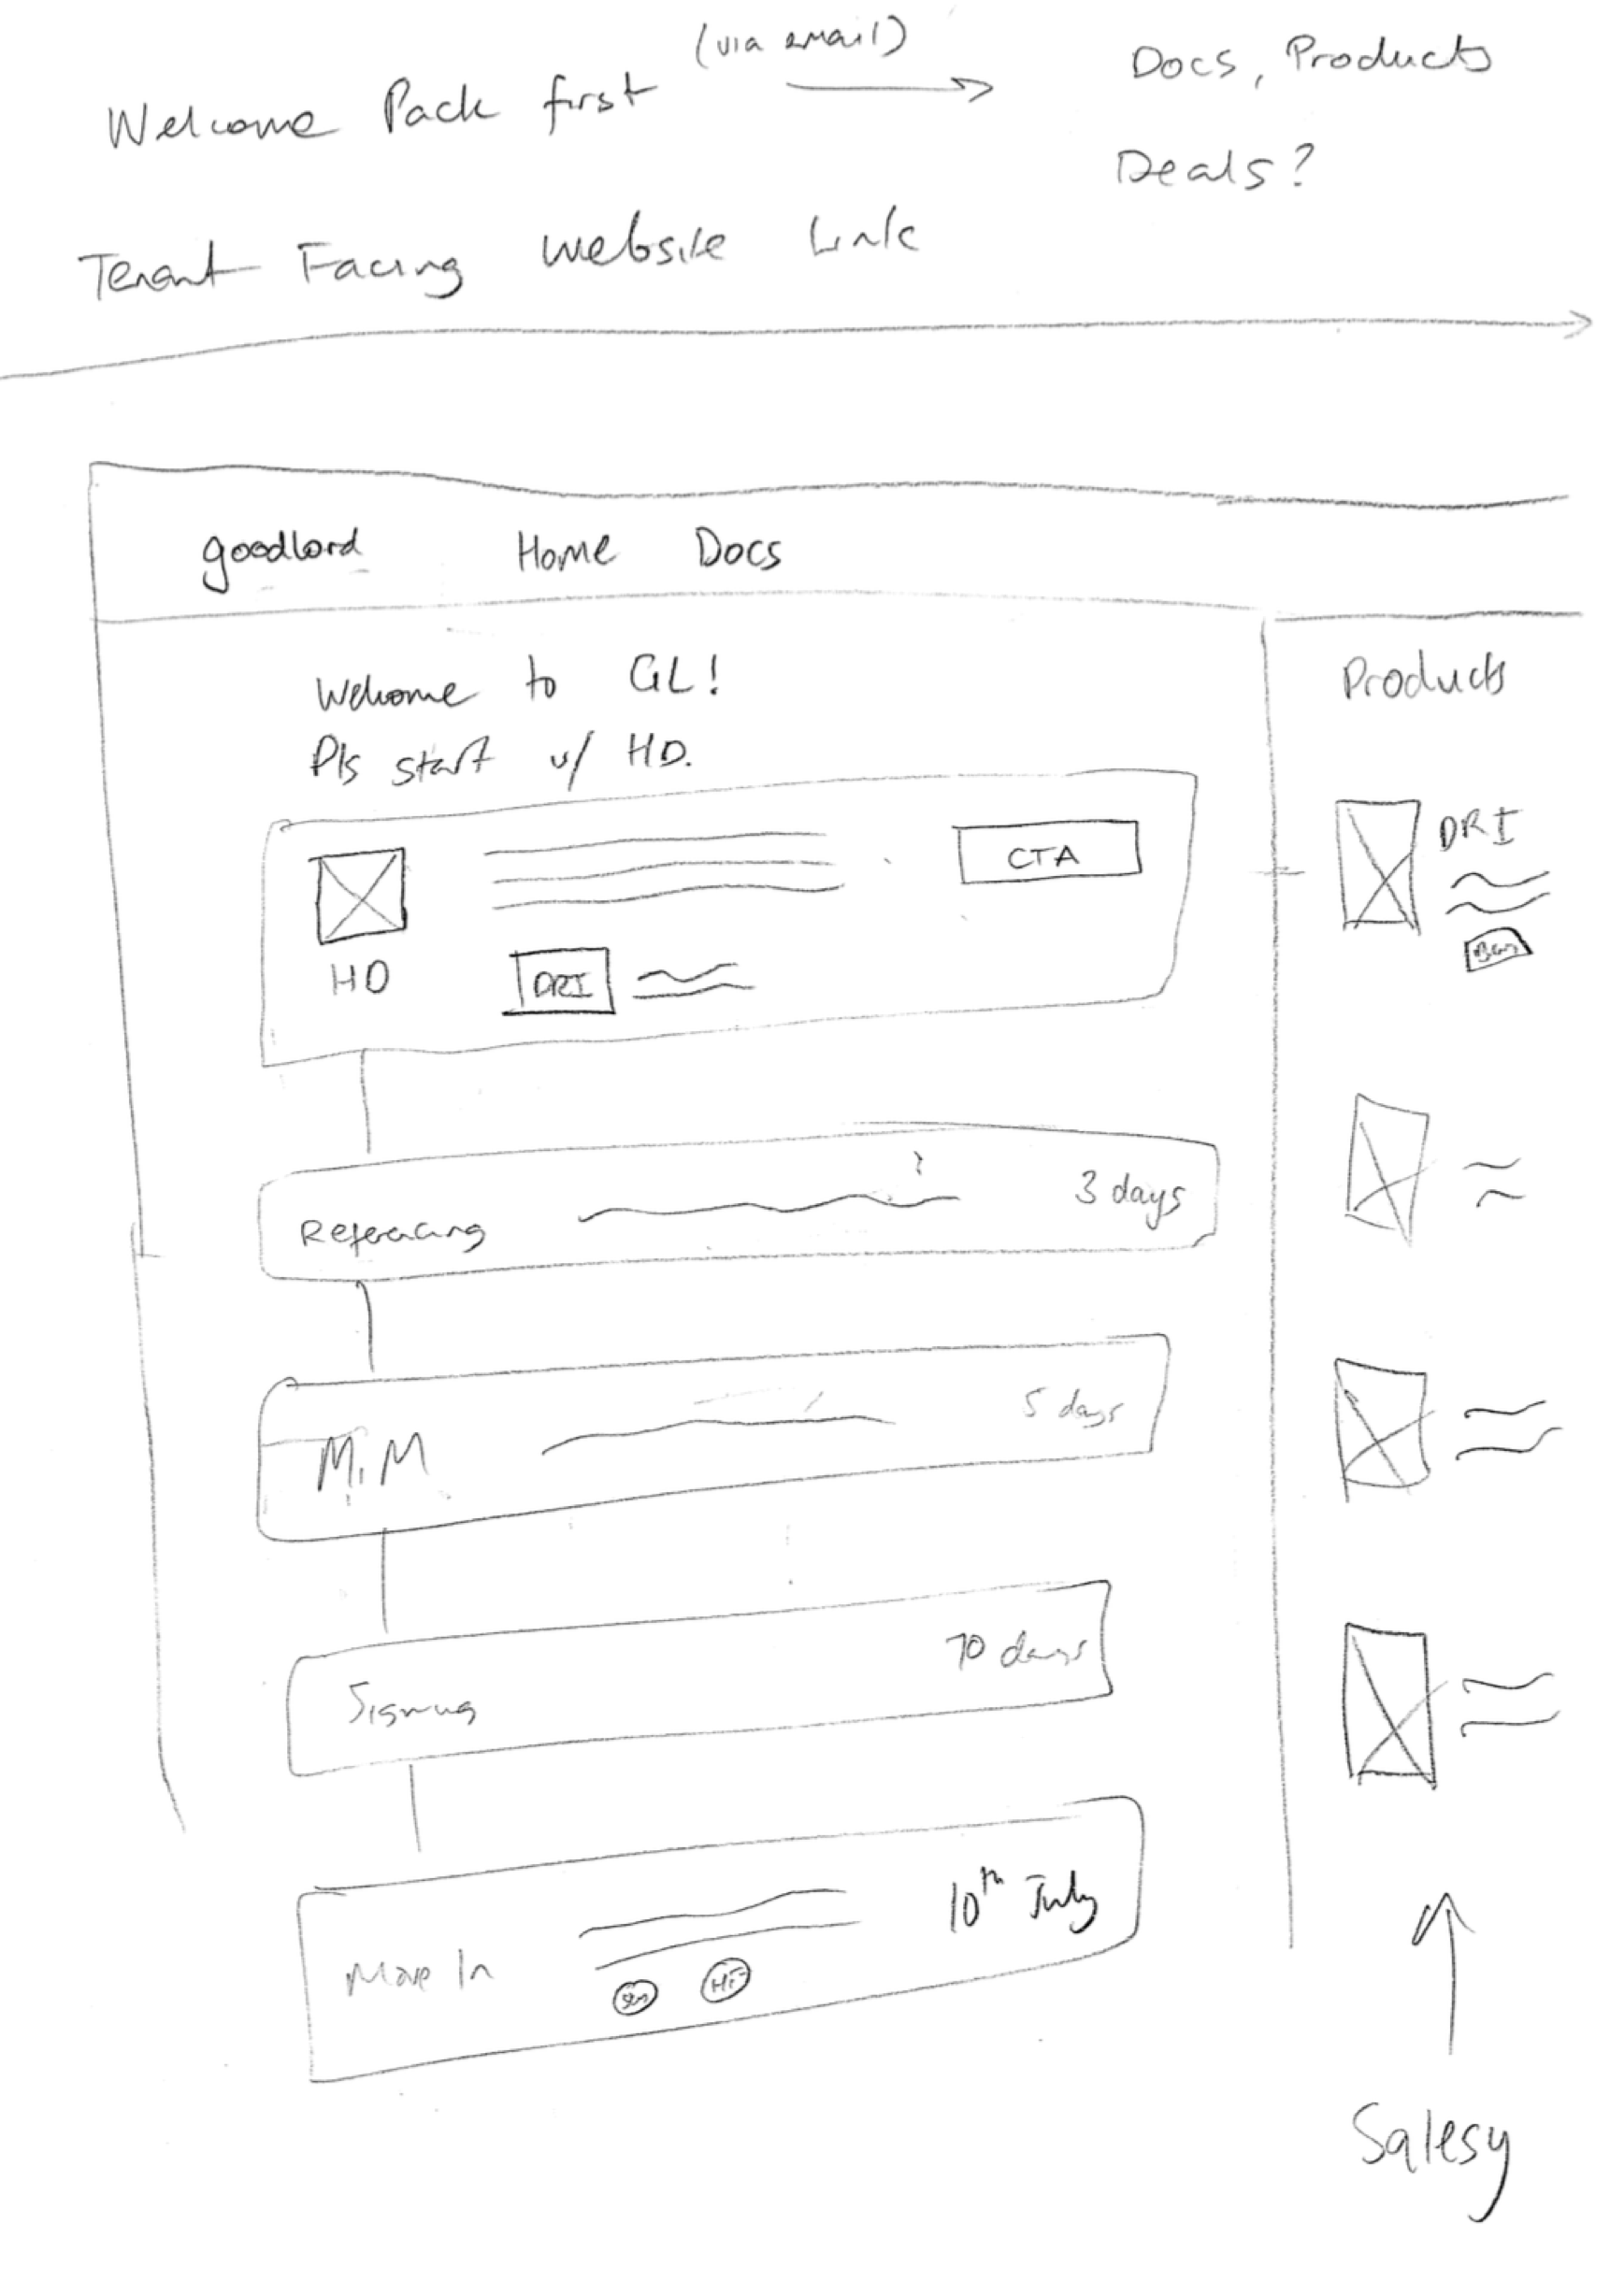 (via email)
Welcome Pack first
Docs, Products
Deals?
Tenant Facing Website Link
goodlord Home Docs
Welcome to GL!
Pls start w/ HD.
CTA
HD
DRI
Referencing 3 days
M.M 5 days
Signing 10 days
Move In 10th July
Products
DRI
Buy
Salesy